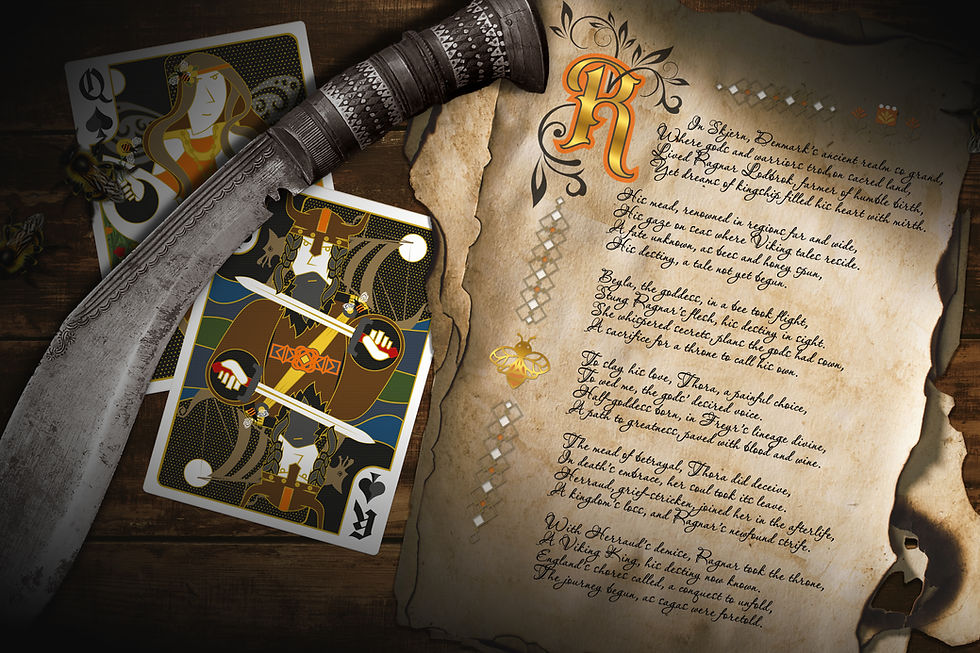 Q
K
R
In Skjern, Denmark's ancient realm so grand,
Where gods and warriors trod on sacred land,
Lived Ragnar Lodbrok, farmer of humble birth,
Yet dreams of kingship filled his heart with mirth.
His mead, renowned in regions far and wide,
His gaze on seas where Viking tales reside.
A fate unknown, as bees and honey spun,
His destiny, a tale not yet begun.
Beyla, the goddess, in a bee took flight,
Stung Ragnar's flesh, his destiny in sight.
She whispered secrets, plans the gods had sown,
A sacrifice for a throne to call his own.
To slay his love, Thora, a painful choice,
To wed me, the gods' desired voice.
Half-goddess born, in Freyr's lineage divine,
A path to greatness, paved with blood and wine.
The mead of betrayal, Thora did deceive,
In death's embrace, her soul took its leave.
Herraud, grief-stricken, joined her in the afterlife,
A kingdom's loss, and Ragnar's newfound strife.
With Herraud's demise, Ragnar took the throne,
A Viking King, his destiny now known.
England's shores called, a conquest to unfold,
The journey begun, as sagas were foretold.